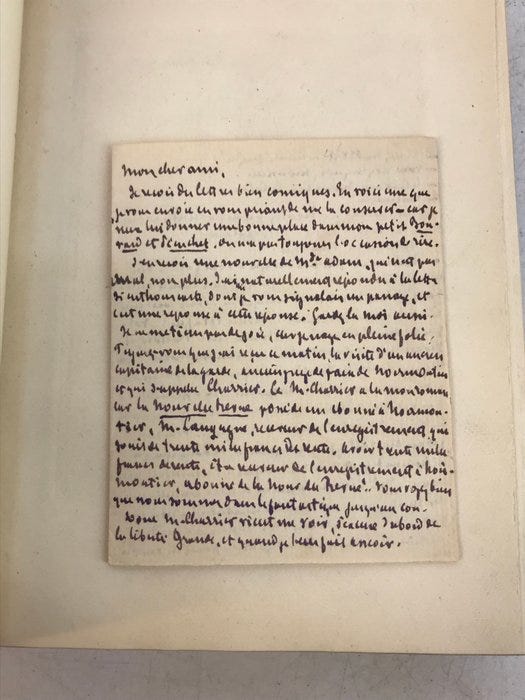 Mon cher ami,
Je reçois des lettres bien comiques. En voici une que
je vous envoie en vous priant de me la conserver — car je
veux lui donner une bonne place dans mon petit Bou-
vard et Pécuchet. On n'a pas toujours l'occasion de rire.
J'en reçois une nouvelle de Mde adam, qui n'est pas
mal, non plus. J'ai naturellement répondu à la lettre
si enthousiaste, dont je vous signalais un passage, et
c'est une réponse à cette réponse. Gardez la moi aussi.
Je me nage en pleine folie,
Figurez-vous que j'ai reçu ce matin, la visite d'un ancien
capitaine de la garde, de Noirmoutier
et qui s'appelle Charrier. Ce M. Charrier a lu mon roman
sur la Nouvelle Revue prêtée un abonné à Noirmou-
tier, M. receveur de l'enregistrement, qui
jouit de trente mille francs de rente. Avoir trente mille
francs de rente, être receveur de l'enregistrement à Noir-
moutier, abonné de la Nouvelle Revue! — vous voyez bien
que nous sommes dans le fantastique jusqu'au cou.
Donc M. Charrier vient me voir, s'excuse d'abord de
la liberté grande, et quand je l'eus fait asseoir.